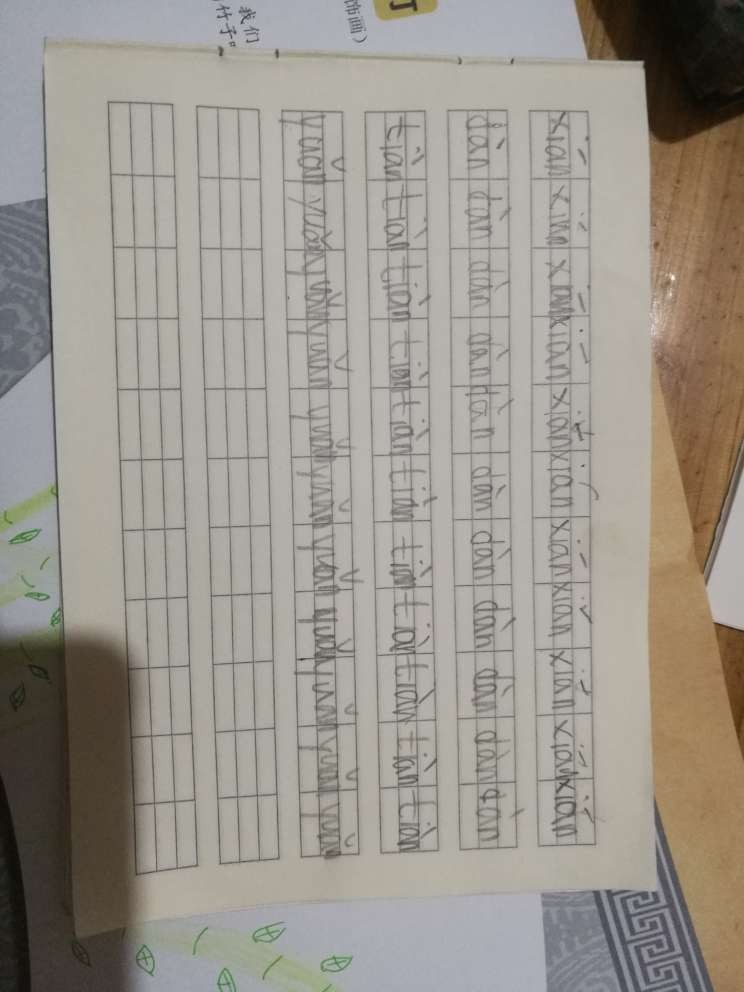 饰画）
我们
竹子”
xiān xiān xiān xiān xiān xiān xiān xiān xiān xiān xiān
dàn dàn dàn dàn dàn dàn dàn dàn dàn dàn dàn
tiàn tiàn tiàn tiàn tiàn tiàn tiàn tiàn tiàn tiàn tiàn
yuǎn yuǎn yuǎn yuǎn yuǎn yuǎn yuǎn yuǎn yuǎn yuǎn yuǎn